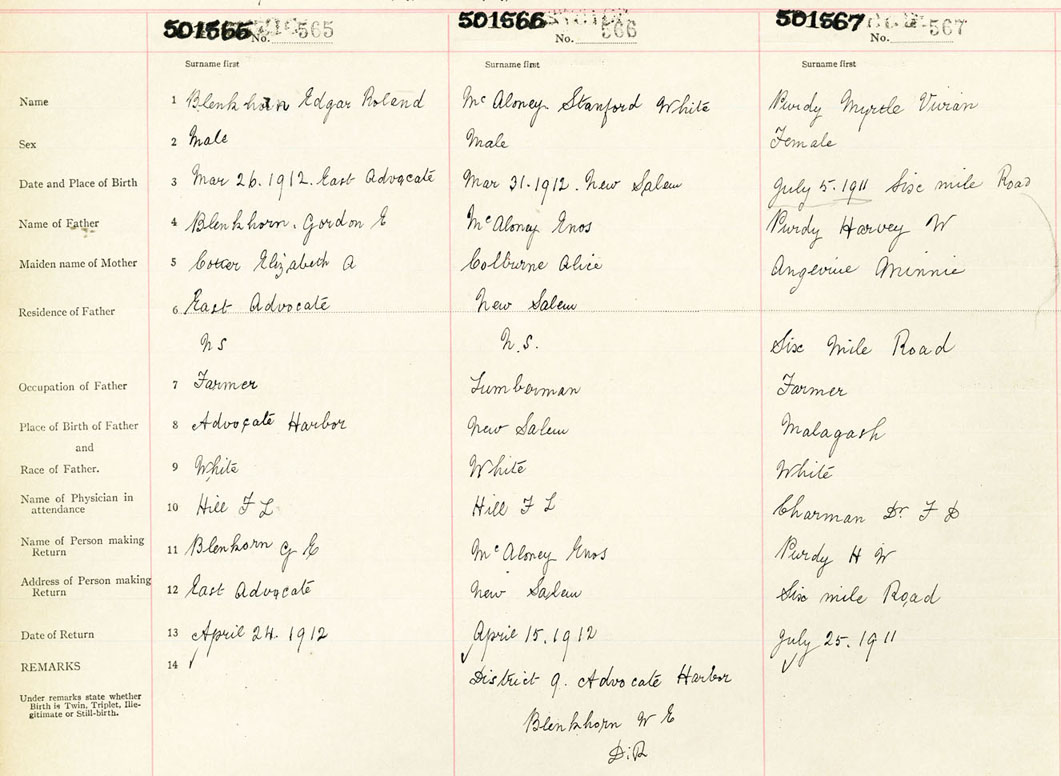 501565 No. 565
501566 No. 566
501567 No. 567
Surname first Surname first Surname first
Name 1 Blenkhorn Edgar Roland McAloney Stanford White Purdy Myrtle Vivian
Sex 2 Male Male Female
Date and Place of Birth 3 Mar 26. 1912. East Advocate Mar 31-1912. New Salem July 5. 1911 Six mile Road
Name of Father 4 Blenkhorn. Gordon E McAloney Enos Purdy Harvey W
Maiden name of Mother 5 Cotter Elizabeth A Colburne Alice Angevine Minnie
Residence of Father 6 East Advocate New Salem
N S N.S. Six Mile Road
Occupation of Father 7 Farmer Lumberman Farmer
Place of Birth of Father 8 Advocate Harbor New Salem Malagash
and
Race of Father. 9 White White White
Name of Physician in
attendance 10 Hill F L Hill F L Charman Dr F D
Name of Person making
Return 11 Blenkorn G E McAloney Enos Purdy H W
Address of Person making
Return 12 East Advocate New Salem Six mile Road
Date of Return 13 April 24. 1912 April 15. 1912 July 25. 1911
REMARKS 14
District 9. Advocate Harbor
Under remarks state whether
Birth is Twin, Triplet, Ille-
gitimate or Still-birth.
Blenkhorn W E
D.R